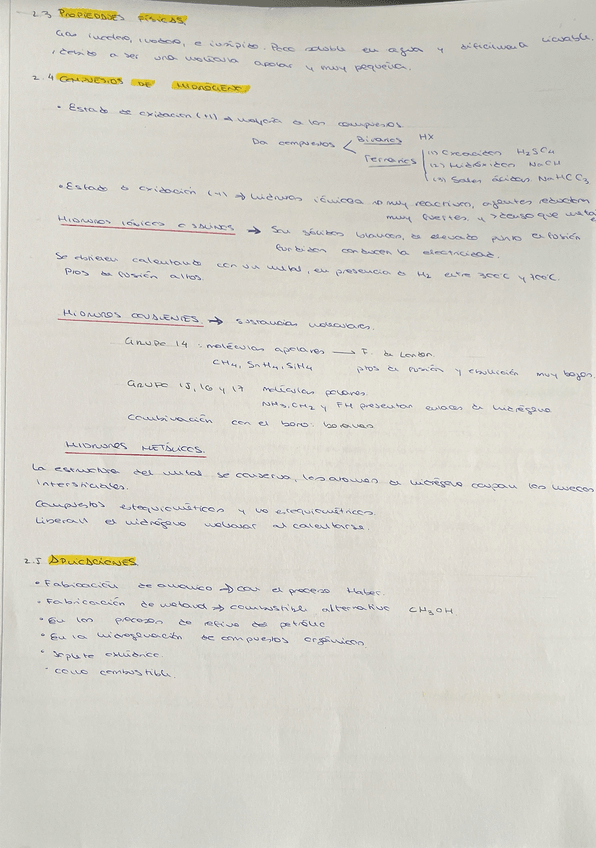 2.3 PROPIEDADES FÍSICAS.
Gas incoloro, inodoro, e insípido. Poco soluble en agua y difícilmente licuable,
debido a ser una molécula apolar y muy pequeña.
2.4 COMPUESTOS DE HIDRÓGENO
• Estado de oxidación (+1) → mayoría de los compuestos.
Da compuestos
Binarios HX
Ternarios
(1) Oxoácidos H2SO4
(2) Hidróxidos NaOH
(3) Sales ácidas NaHCO3
• Estado de oxidación (-1) → hidruros iónicos → muy reactivos, agentes reductores
muy fuertes. y que
HIDRUROS IÓNICOS O SALINOS → Son sólidos blancos, de elevado punto de fusión
fundidos conducen la electricidad.
Se obtienen calentando con un metal, en presencia de H2 entre 300ºC y 700ºC.
Ptos de fusión altos.
HIDRUROS COVALENTES → Sustancias moleculares.
GRUPO 14: moléculas apolares → F. de London.
CH4, SnH4, SiH4 ptos de fusión y ebullición muy bajos.
GRUPO 15, 16 y 17 moléculas polares.
NH3, OH2 y FH presentan enlaces de hidrógeno
Combinación con el boro: boranos
HIDRUROS METÁLICOS.
La estructura del metal se conserva, los átomos de hidrógeno ocupan los huecos
intersticiales.
Compuestos estequiométricos y no estequiométricos.
Liberan el hidrógeno molecular al calentarse.
2.5 APLICACIONES.
• Fabricación de amoníaco → con el proceso Haber.
• Fabricación de metanol → combustible alternativo CH3OH.
• En los procesos de refino del petróleo
• En la hidrogenación de compuestos orgánicos.
• Soplete oxhídrico.
• Como combustible.